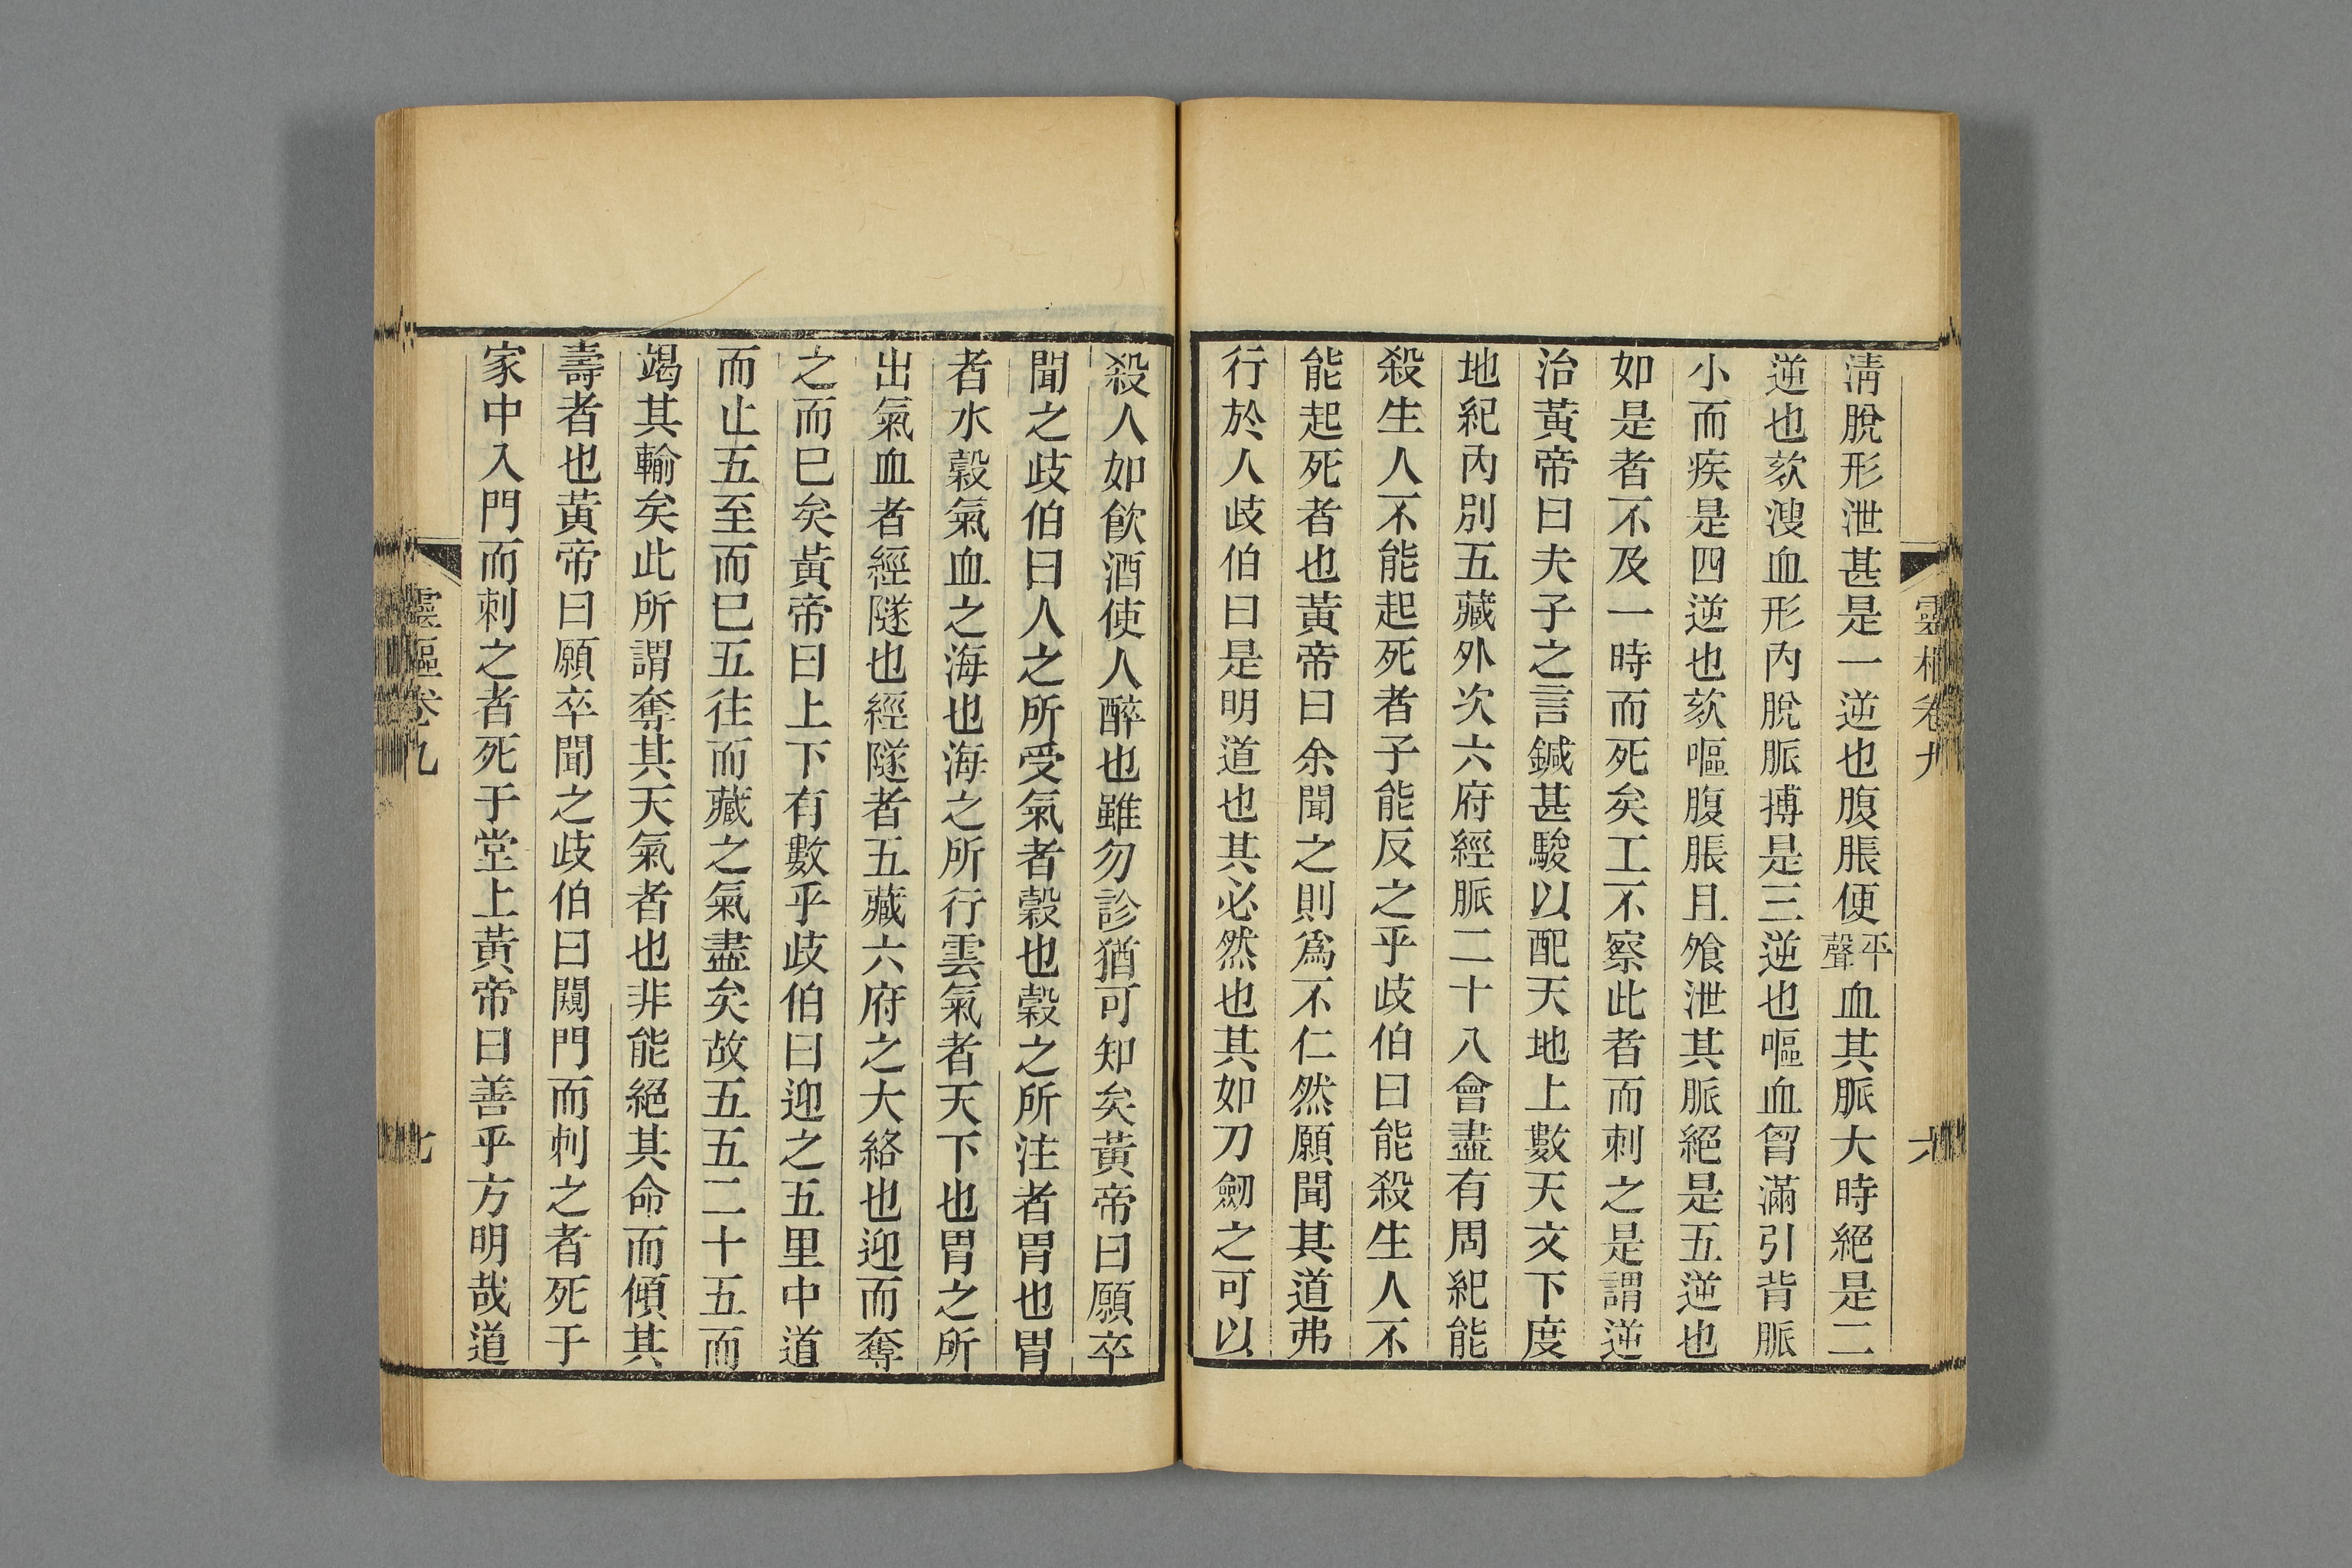 靈樞卷九 六
淸脫形泄甚是一逆也腹脹便平聲血其脈大時絕是二
逆也欬溲血形內脫脈搏是三逆也嘔血胷滿引背脈
小而疾是四逆也欬嘔腹脹且飧泄其脈絕是五逆也
如是者不及一時而死矣工不察此者而刺之是謂逆
治黃帝曰夫子之言鍼甚駿以配天地上數天文下度
地紀內別五藏外次六府經脈二十八會盡有周紀能
殺生人不能起死者子能反之乎歧伯曰能殺生人不
能起死者也黃帝曰余聞之則爲不仁然願聞其道弗
行於人歧伯曰是明道也其必然也其如刀劒之可以
殺人如飮酒使人醉也雖勿診猶可知矣黃帝曰願卒
聞之歧伯曰人之所受氣者穀也穀之所注者胃也胃
者水穀氣血之海也海之所行雲氣者天下也胃之所
出氣血者經隧也經隧者五藏六府之大絡也迎而奪
之而巳矣黃帝曰上下有數乎歧伯曰迎之五里中道
而止五至而巳五往而藏之氣盡矣故五五二十五而
竭其輸矣此所謂奪其天氣者也非能絕其命而傾其
壽者也黃帝曰願卒聞之歧伯曰闚門而刺之者死于
家中入門而刺之者死于堂上黃帝曰善乎方明哉道
靈樞卷九 七